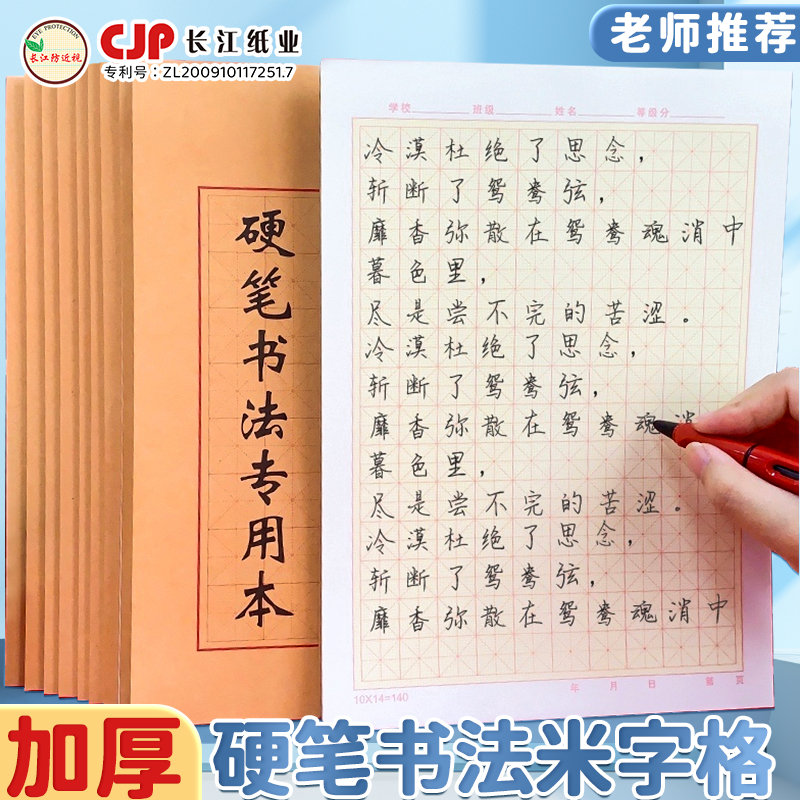 EYE PROTECTION
长江防近视
CJP 长江纸业
专利号：ZL200910117251.7
老师推荐
硬笔书法专用本
学校 班级 姓名 等级分
冷漠杜绝了思念，
斩断了鸳鸯弦，
靡香弥散在鸳鸯魂消中
暮色里，
尽是尝不完的苦涩。
冷漠杜绝了思念，
斩断了鸳鸯弦，
靡香弥散在鸳鸯魂消
暮色里，
尽是尝不完的苦涩。
冷漠杜绝了思念，
斩断了鸳鸯弦，
靡香弥散在鸳鸯魂消中
10X14=140
年 月 日 第 页
加厚 硬笔书法米字格